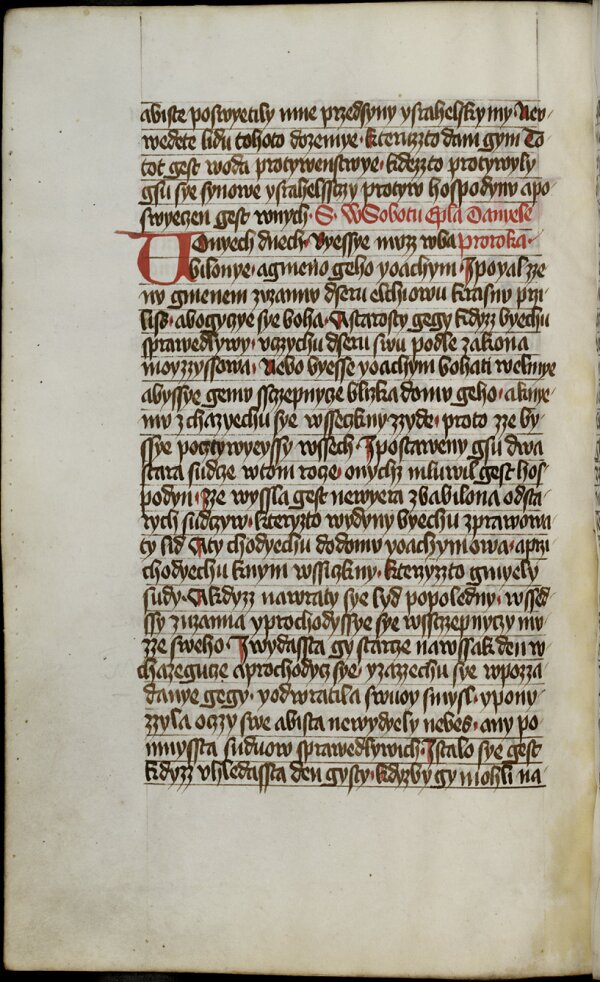 abiste poswyetily mne przedsyny ysrahelskymy Nev
wedete lidu tohoto dozemye kteruzzto dam gym To
tot gest woda protywenstwye kdezzto protywyly
gsu sye synowe ysrahelsstzy protyw hospodynu apo
swyeczen gest wnych S. WSobotu Epla Danyele
Vonyech dnech Byessye muzz wba Proroka
bilonye agmeno geho yoachym Ipoyal zze
nu gmenem zuzannu dseru elchiowu krasnu przi
liss abogyczye sye boha Astarosty gegy kdyzz byechu
sprawedlywy vczychu dseru swu podle zakona
moyzzyssowa Nebo byesse yoachym bohati welmye
abyssye gemu sstzepnycze blizka domu geho aknye
mu zchazyechu sye wssiczkny zzyde proto zze by
ssye pocztywyeyssy wssech Ipostaweny gsu dwa
stara sudcze wtom rocze onychz mluwil gest hos
podyn Zze wyssla gest newyera zbabilona odsta
rych sudczyw kteryzto wydyny byechu zprawowa
ty lid Aty chodyechu dodomu yoachymowa aprzi
chodyechu knym wssiczkny kterzyzto gmyely
sudy Akdyzz nawraty sye lyd popoledny wssed
ssy zuzanna yprochodyssye sye wsstzepnyczy mu
zze sweho Iwydassta gy starcze nawssak den w
chazegucze aprochodycz sye yzazzechu sye wpozza
danye gegy yodwratila swuoy smysl ypony
zzyla oczzy swe abista newydyely nebes any po
mnyssta suduow sprawedlywich Istalo sye gest
kdyzz vhledassta den gysty kdyzby gy mohli na